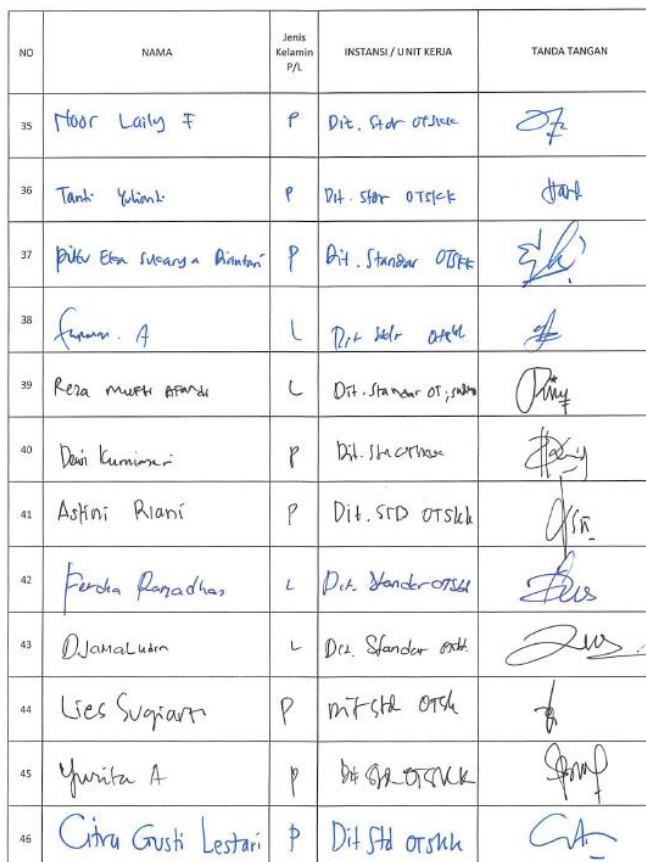 NO NAMA Jenis Kelamin P/L INSTANSI / UNIT KERJA TANDA TANGAN
35 Noor Laily F P Dit. Star OTSKK
36 Tanti Yulianti P Dit. Star OTSKK
37 Putu Eka Sucarya Diantari P Dit. Standar OTSKK
38 A L Dit OTSKK
39 Reza Mufti Afandi L Dit. Standar OT,
40 Dewi Kurniasari P Dit.
41 Astini Riani P Dit. STD OTSKK
42 Ferdha Ramadhan L Dit. Standar OTSKK
43 Djamaludin L Dit. Standar
44 Lies Sugiarti P Dit std OTSK
45 Yunita A P Dit STD OTSKK
46 Citra Gusti Lestari P Dit Std OTSKK